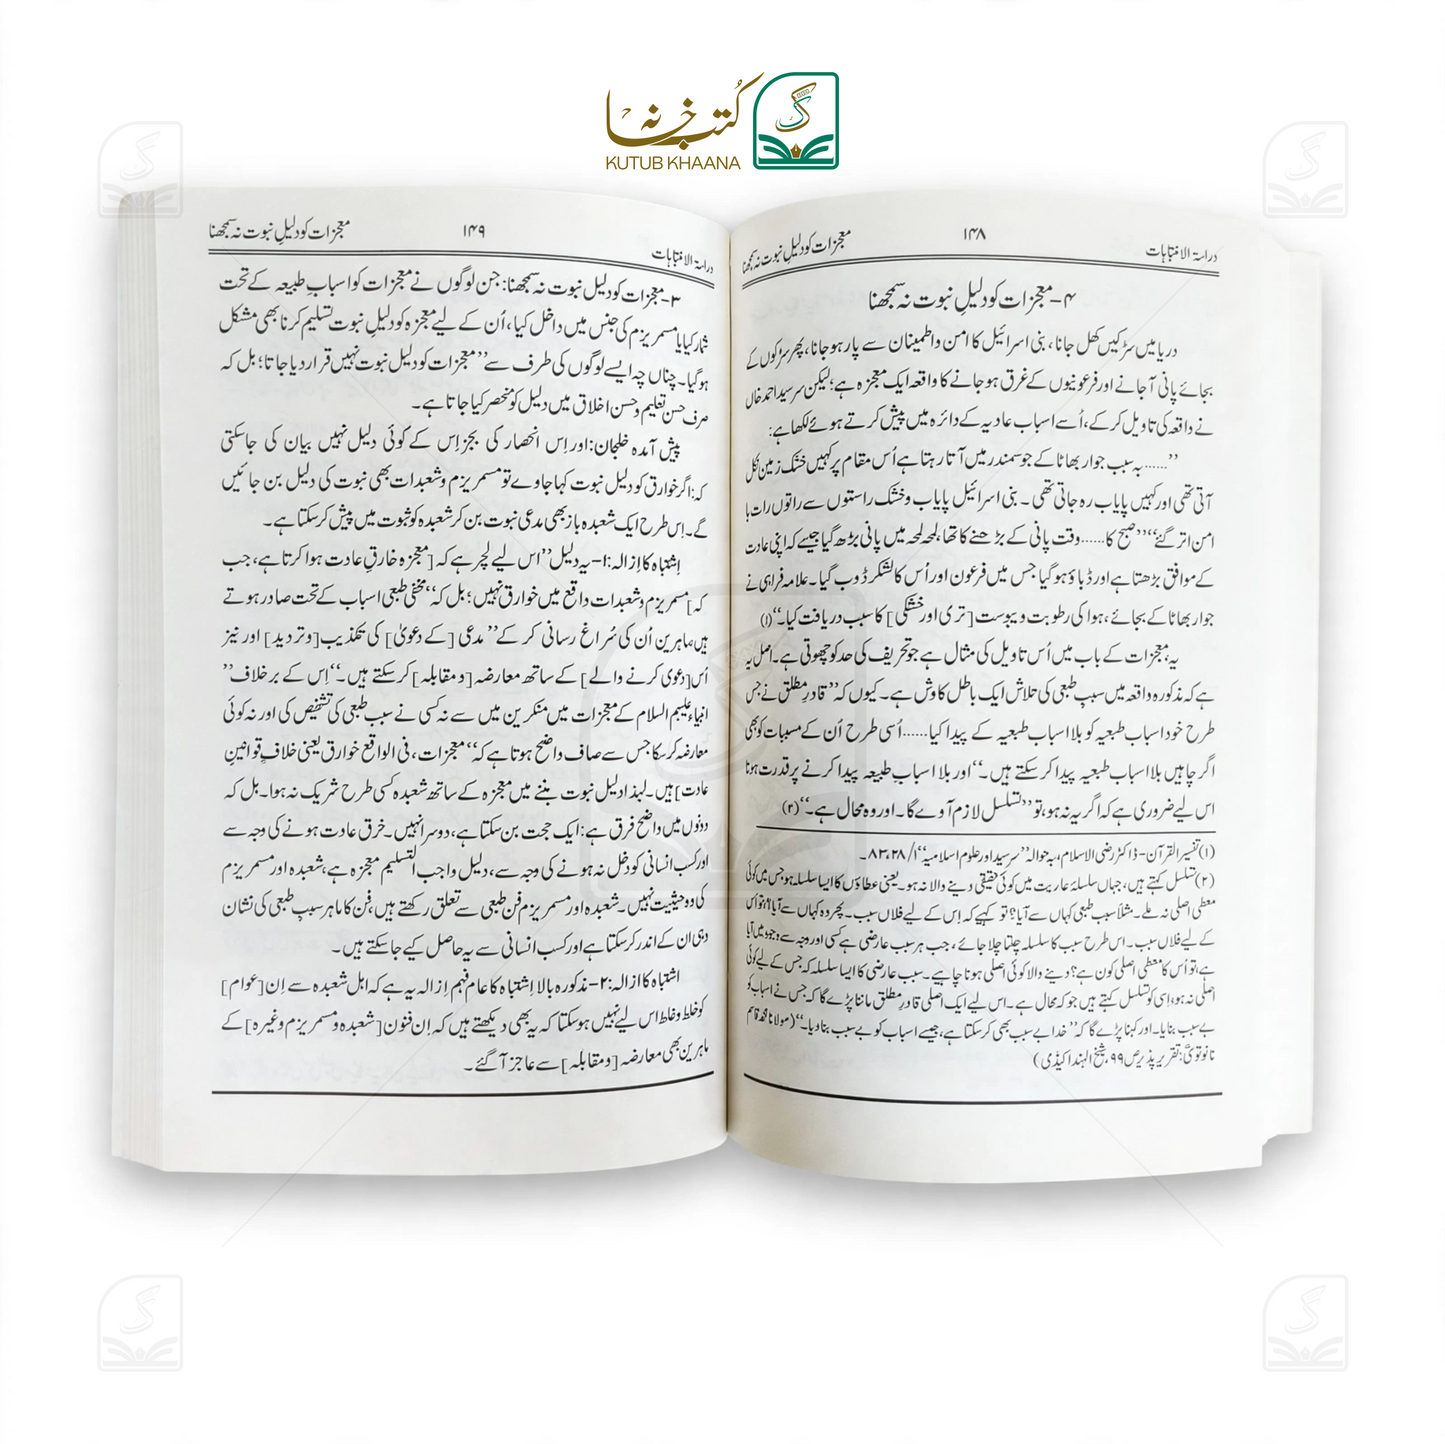 کُتب خانہ
KUTUB KHAANA
دراسۃ الانتباہات ۱۴۸ معجزات کو دلیلِ نبوت نہ سمجھنا
۴- معجزات کو دلیلِ نبوت نہ سمجھنا
دریا میں سڑکیں کھل جانا، بنی اسرائیل کا امن و اطمینان سے پار ہو جانا، پھر سڑکوں کے
بجائے پانی آ جانے اور فرعونیوں کے غرق ہو جانے کا واقعہ ایک معجزہ ہے؛ لیکن سرسید احمد خاں
نے واقعہ کی تاویل کر کے، اُسے اسباب عادیہ کے دائرہ میں پیش کرتے ہوئے لکھا ہے:
’’......بہ سبب جوار بھاٹا کے جو سمندر میں آتا رہتا ہے اُس مقام پر کہیں خشک زمین نکل
آتی تھی اور کہیں پایاب رہ جاتی تھی۔ بنی اسرائیل پایاب و خشک راستوں سے راتوں رات با
امن اتر گئے‘‘ ’’صبح کا......وقت پانی کے بڑھنے کا تھا، لمحہ لمحہ میں پانی بڑھ گیا جیسے کہ اپنی عادت
کے موافق بڑھتا ہے اور ڈباؤ ہو گیا جس میں فرعون اور اُس کا لشکر ڈوب گیا۔ علامہ فراہی نے
جوار بھاٹا کے بجائے، ہوا کی رطوبت و یبوست [تری اور خشکی] کا سبب دریافت کیا۔‘‘(۱)
یہ، معجزات کے باب میں اُس تاویل کی مثال ہے جو تحریف کی حد کو چھوتی ہے۔ اصل یہ
ہے کہ مذکورہ واقعہ میں سببِ طبعی کی تلاش ایک باطل کاوش ہے۔ کیوں کہ ’’قادرِ مطلق نے جس
طرح خود اسباب طبعیہ کو بلا اسباب طبعیہ کے پیدا کیا......اُسی طرح اُن کے مسببات کو بھی
اگر چاہیں بلا اسباب طبعیہ پیدا کر سکتے ہیں۔‘‘ اور بلا اسبابِ طبیعہ پیدا کرنے پر قدرت ہونا
اس لیے ضروری ہے کہ اگر یہ نہ ہو، تو ’’تسلسل لازم آوے گا۔ اور وہ محال ہے۔‘‘(۲)
(۱) تفسیر القرآن - ڈاکٹر رضی الاسلام، بہ حوالہ ’’سرسید اور علوم اسلامیہ‘‘ ۱/ ۸۳،۲۸۔
(۲) تسلسل کہتے ہیں، جہاں سلسلۂ عاریت میں کوئی حقیقی دینے والا نہ ہو۔ یعنی عطاؤں کا ایسا سلسلہ ہو جس میں کوئی
معطی اصلی نہ ملے۔ مثلاً سببِ طبعی کہاں سے آیا؟ تو کہیے کہ اِس کے لیے فلاں سبب۔ پھر وہ کہاں سے آیا؟ تو اُس
کے لیے فلاں سبب۔ اس طرح سبب کا سلسلہ چلتا چلا جائے، جب ہر سبب عارضی ہے کسی اور وجہ سے وجود میں آیا
ہے، تو اُس کا معطی اصلی کون ہے؟ دینے والا کوئی اصلی ہونا چاہیے۔ سبب عارضی کا ایسا سلسلہ کہ جس کے لیے کوئی
اصلی نہ ہو، اِسی کو تسلسل کہتے ہیں جو کہ محال ہے۔ اس لیے ایک اصلی قادرِ مطلق ماننا پڑے گا کہ جس نے اسباب کو
بے سبب بنایا۔ اور کہنا پڑے گا کہ ’’خدا بے سبب بھی کر سکتا ہے، جیسے اسباب کو بے سبب بنا دیا۔‘‘ (مولانا محمد قاسم
نانوتویؒ: تقریر پذیر ص ۹۹، شیخ الہند اکیڈمی)
دراسۃ الانتباہات ۱۴۹ معجزات کو دلیلِ نبوت نہ سمجھنا
۳- معجزات کو دلیل نبوت نہ سمجھنا: جن لوگوں نے معجزات کو اسبابِ طبیعہ کے تحت
شمار کیا یا مسمریزم کی جنس میں داخل کیا، اُن کے لیے معجزہ کو دلیلِ نبوت تسلیم کرنا بھی مشکل
ہو گیا۔ چناں چہ ایسے لوگوں کی طرف سے ’’معجزات کو دلیل نبوت نہیں قرار دیا جاتا؛ بل کہ
صرف حسن تعلیم و حسن اخلاق میں دلیل کو منحصر کیا جاتا ہے۔
پیش آمدہ خلجان: اور اِس انحصار کی بجز اِس کے کوئی دلیل نہیں بیان کی جا سکتی
کہ: اگر خوارق کو دلیل نبوت کہا جاوے تو مسمریزم و شعبدات بھی نبوت کی دلیل بن جائیں
گے۔ اِس طرح ایک شعبدہ باز بھی مدعی نبوت بن کر شعبدہ کو ثبوت میں پیش کر سکتا ہے۔
اِشتباہ کا اِزالہ: ۱- یہ دلیل‘‘ اس لیے لچر ہے کہ [معجزہ خارقِ عادت ہوا کرتا ہے، جب
کہ] مسمریزم و شعبدات واقع میں خوارق نہیں؛ بل کہ ’’مخفی طبعی اسباب کے تحت صادر ہوتے
ہیں، ماہرین اُن کی سُراغ رسانی کر کے‘‘ مدعی [کے دعویٰ] کی تکذیب [و تردید] اور نیز
اُس [دعویٰ کرنے والے] کے ساتھ معارضہ [و مقابلہ] کر سکتے ہیں۔‘‘ اِس کے برخلاف ’’
انبیاء علیہم السلام کے معجزات میں منکرین میں سے نہ کسی نے سببِ طبعی کی تشخیص کی اور نہ کوئی
معارضہ کر سکا جس سے صاف واضح ہوتا ہے کہ ’’معجزات، فی الواقع خوارق یعنی خلافِ قوانینِ
عادت] ہیں۔ لہٰذا دلیل نبوت بننے میں معجزہ کے ساتھ شعبدہ کسی طرح شریک نہ ہوا۔ بل کہ
دونوں میں واضح فرق ہے: ایک حجت بن سکتا ہے، دوسرا نہیں۔ خرق عادت ہونے کی وجہ سے
اور کسب انسانی کو دخل نہ ہونے کی وجہ سے، دلیل واجب التسلیم معجزہ ہے، شعبدہ اور مسمریزم
کی وہ حیثیت نہیں۔ شعبدہ اور مسمریزم فن طبعی سے تعلق رکھتے ہیں، فن کا ماہر سببِ طبعی کی نشان
دہی ان کے اندر کر سکتا ہے اور کسب انسانی سے یہ حاصل کیے جا سکتے ہیں۔
اشتباہ کا ازالہ: ۲- مذکورہ بالا اِشتباہ کا عام فہم اِزالہ یہ ہے کہ اہل شعبدہ سے اِن [عوام]
کو خلط و غلط اس لیے نہیں ہو سکتا کہ یہ بھی دیکھتے ہیں کہ اِن فنون [شعبدہ و مسمریزم وغیرہ] کے
ماہرین بھی معارضہ [و مقابلہ] سے عاجز آ گئے۔